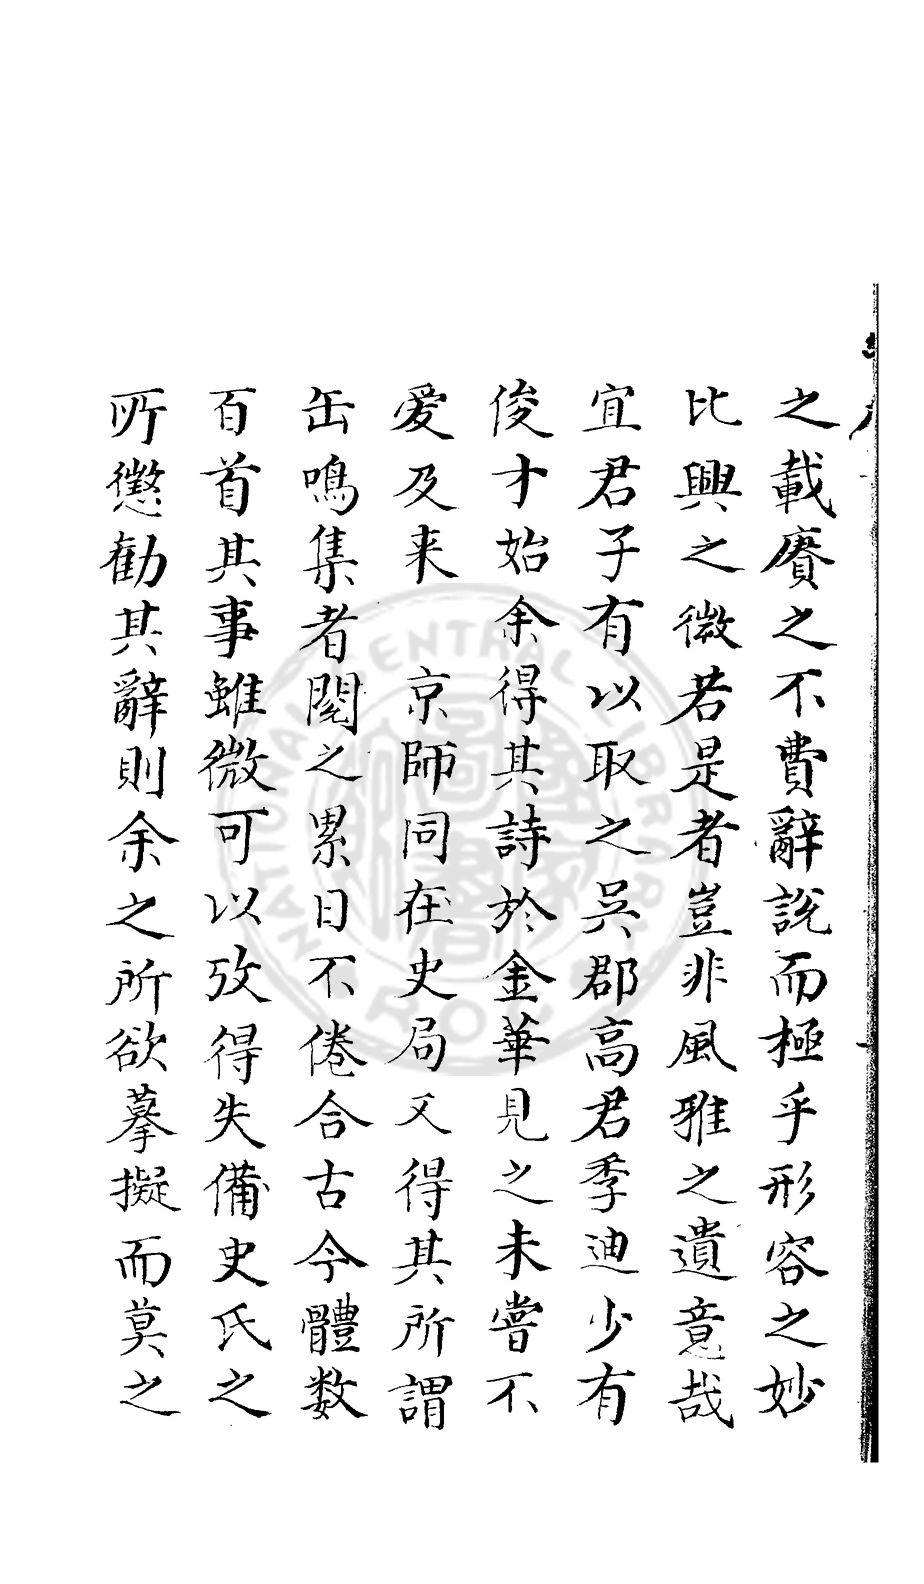 之載賡之不費辭說而極乎形容之妙
比興之微若是者豈非風雅之遺意哉
宜君子有以取之吳郡高君季迪少有
俊才始余得其詩於金華見之未嘗不
爱及来 京師同在史局又得其所謂
缶鳴集者閱之累日不倦合古今體数
百首其事雖微可以攷得失備史氏之
所懲勸其辭則余之所欲摹擬而莫之
NATIONAL CENTRAL LIBRARY